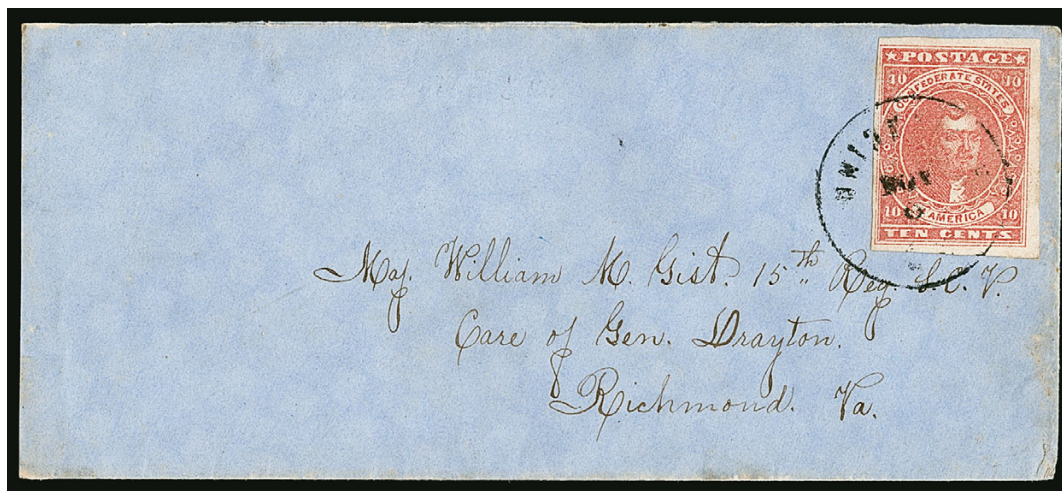 ★ POSTAGE ★
10 10
CONFEDERATE STATES
AMERICA
10 10
TEN CENTS
Maj. William M. Gist. 15th Reg. S.C.V.
Care of Gen. Drayton.
Richmond. Va.